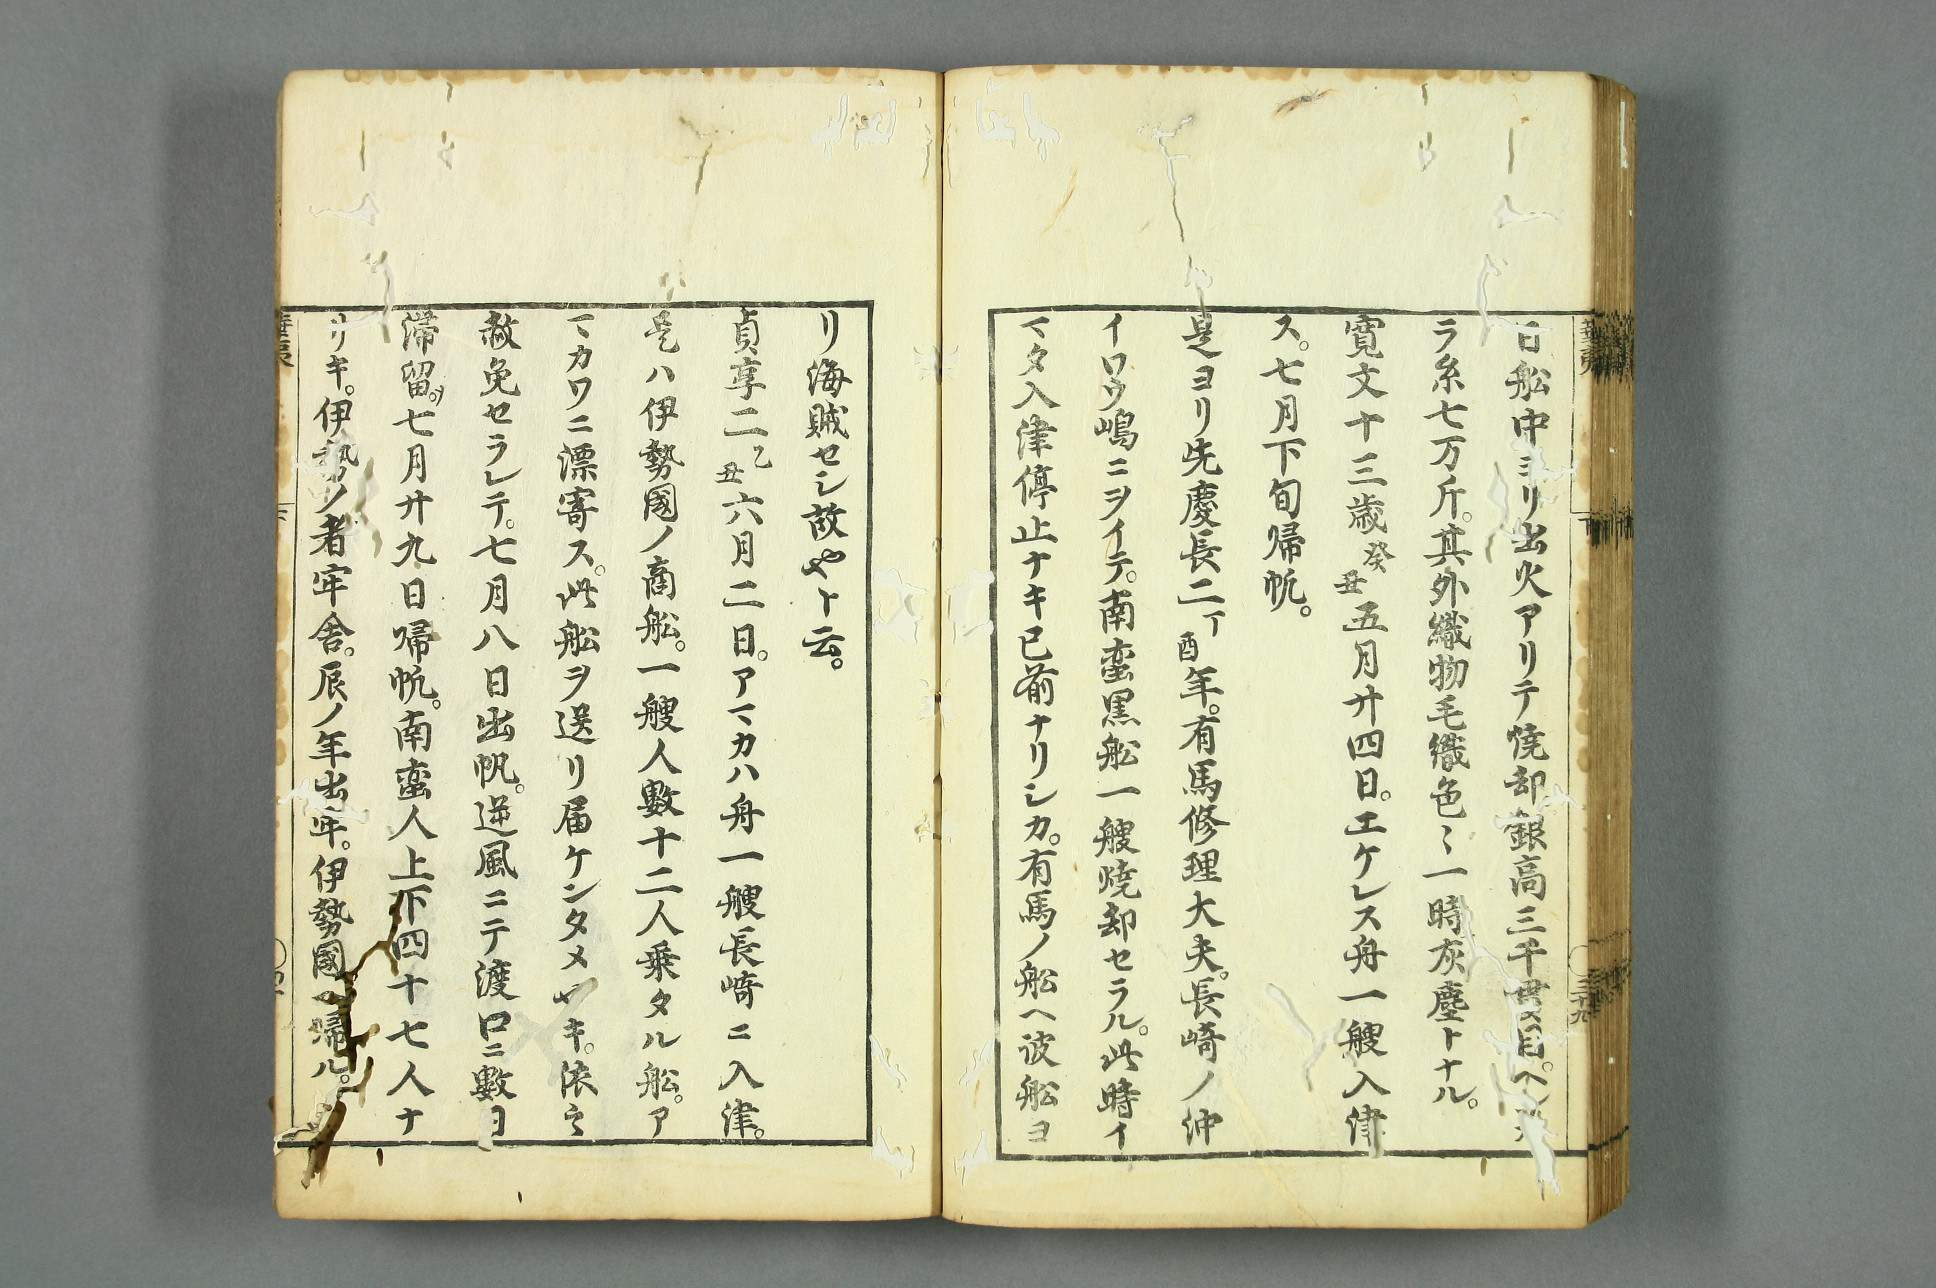 日舩中ヨリ出火アリテ焼却銀高三千貫目ヘン
ラ糸七万斤。其外織物毛織色〻一時灰塵トナル。
寛文十三歳癸丑五月廿四日。エケレス舟一艘入津
ス。七月下旬帰帆。
是ヨリ先慶長二丁酉年。有馬修理大夫。長崎ノ沖
イロウ嶋ニヲイテ。南蛮黒舩一艘焼却セラル。此時イ
マタ入津停止ナキ已前ナリシカ。有馬ノ舩ヘ彼舩ヨ
リ海賊セシ故也ト云。
貞享二乙丑六月二日。アマカハ舟一艘長崎ニ入津。
是ハ伊勢國ノ商舩。一艘人數十二人乗タル舩。ア
マカワニ漂寄ス。此舩ヲ送リ届ケンタメ也キ。依之
赦免セラレテ。七月八日出帆。逆風ニテ渡口ニ數日
滞留。七月廿九日帰帆。南蛮人上下四十七人ナ
リキ。伊勢ノ者牢舎。辰ノ年出牢。伊勢國ヘ帰ル。